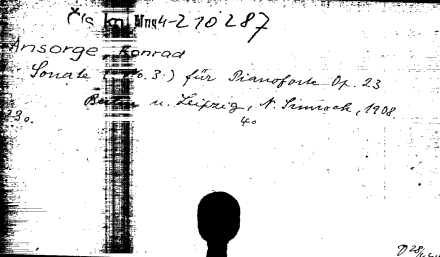 Mus 4-210287
Ansorge, Konrad
Sonate (No. 3.) für Pianoforte Op. 23
Berlin u. Leipzig, N. Simrock, 1908.
4o